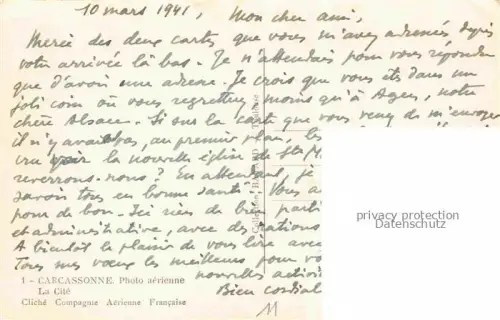 10 mars 1941, Mon cher ami,
Merci des deux cartes que vous m'avez adressées depuis
votre arrivée là bas. Je n'attendais pour vous répondre
que d'avoir une adresse. Je crois que vous êtes dans un
joli coin où vous regrettez moins qu'à Agen, notre
chère Alsace. Si sur la carte que vous venez de m'envoyer
il n'y avait pas, au premier plan, les
cru voir la nouvelle église de Ste M
reverrons-nous? En attendant, je
savoir tous en bonne santé. Vous a
pour de bon. Ici rien de bien parti
et administrative, avec des
A bientôt le plaisir de vous lire avec
Tous mes vœux les meilleurs pour vo
nouvelles activi
Bien cordial
privacy protection
Datenschutz
1 - CARCASSONNE. Photo aérienne
La Cité
Cliché Compagnie Aérienne Française
11